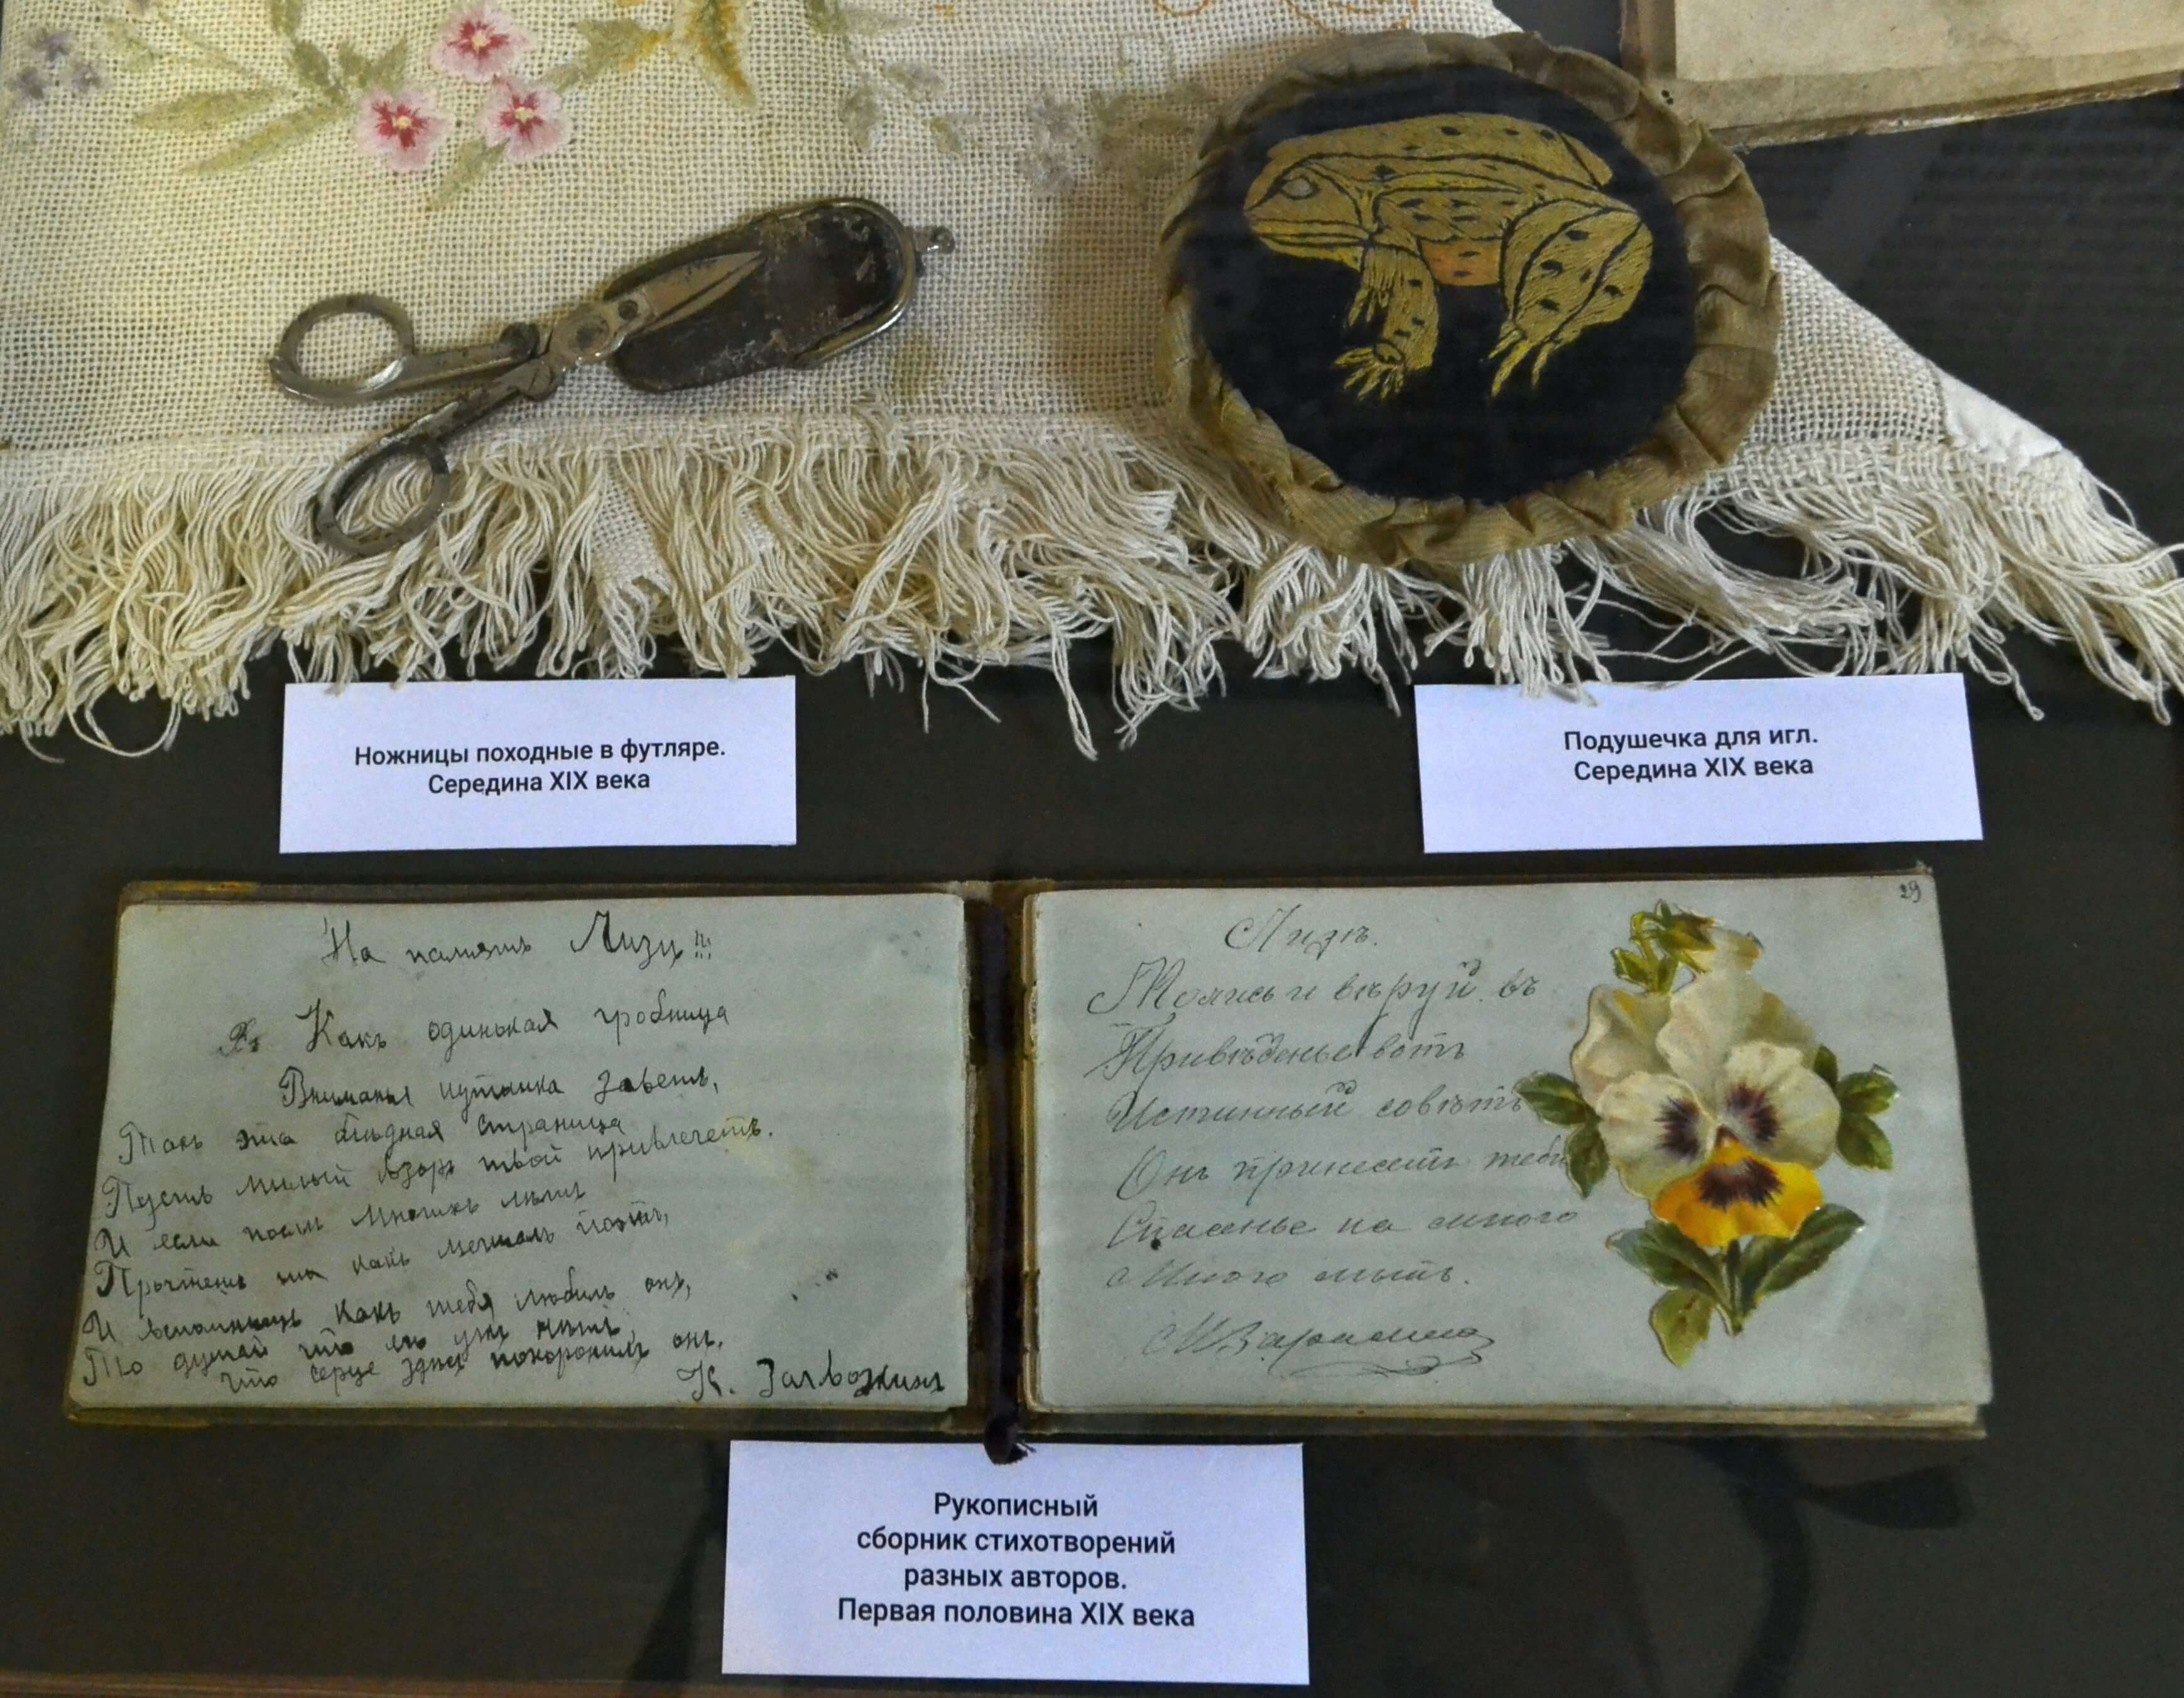 Ножницы походные в футляре.
Середина XIX века
Подушечка для игл.
Середина XIX века
На память Лизы!!!
Какъ одинокая гробница
Вниманья путника зоветъ,
Такъ эта блѣдная страница
Пусть милый взоръ твой привлечетъ.
И если послѣ многихъ лѣтъ
Прочтешь ты какъ мечталъ поэтъ,
И вспомнишь какъ тебя любилъ онъ,
То думай что его ужъ нѣтъ,
что серце здѣсь похоронилъ онъ.
К.
29
Лизѣ.
Молись и вѣруй. въ
Привѣденье вотъ
Истинный совѣтъ
Онъ принесетъ тебѣ
Спасенье на много
много лѣтъ.
Рукописный
сборник стихотворений
разных авторов.
Первая половина XIX века